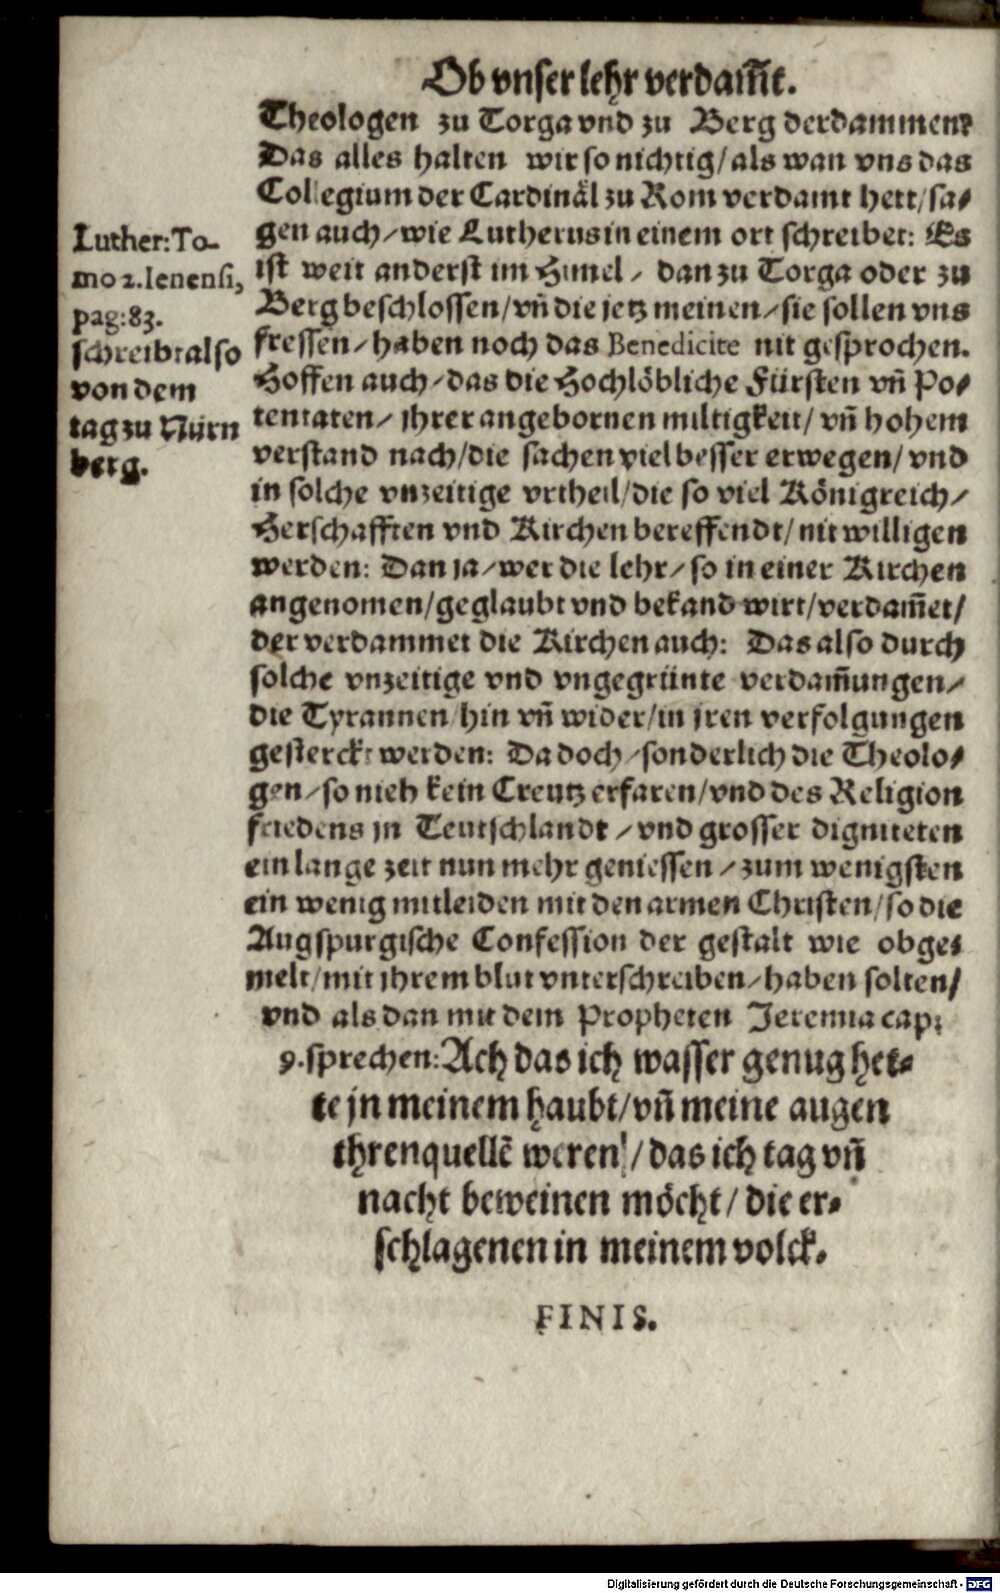 Ob vnser lehr verdam̃t.
Theologen zu Torga vnd zu Berg derdammen?
Das alles halten wir so nichtig/als wan vns das
Collegium der Cardinål zu Rom verdamt hett/sa-
gen auch/wie Lutherus in einem ort schreibet: Es
ist weit anderst im Himel/ dan zu Torga oder zu
Berg beschlossen/vn̄ die jetz meinen/sie sollen vns
fressen/haben noch das Benedicite nit gesprochen.
Hoffen auch/das die Hochlöbliche Fürsten vn̄ Po-
tentaten/ ihrer angebornen miltigkeit/ vn̄ hohem
verstand nach/die sachen viel besser erwegen/ vnd
in solche vnzeitige vrtheil/die so viel Königreich/
Herschafften vnd Kirchen bereffendt/nit willigen
werden: Dan ja/wer die lehr/so in einer Kirchen
angenomen/geglaubt vnd bekand wirt/verdam̃et/
der verdammet die Kirchen auch: Das also durch
solche vnzeitige vnd vngegrünte verdam̃ungen/
die Tyrannen hin vn̄ wider/in jren verfolgungen
gesterckt werden: Da doch/sonderlich die Theolo-
gen/so nieh kein Creutz erfaren/vnd des Religion
friedens jn Teutschlandt/vnd grosser digniteten
ein lange zeit nun mehr geniessen/zum wenigsten
ein wenig mitleiden mit den armen Christen/so die
Augspurgische Confession der gestalt wie obge-
melt/mit ihrem blut vnterschreiben/haben solten/
vnd als dan mit dem Propheten Jeremia cap:
9.sprechen: Ach das ich wasser genug het-
te jn meinem haubt/vn̄ meine augen
threnquellē weren/das ich tag vn̄
nacht beweinen möcht/die er-
schlagenen in meinem volck.
FINIS.
Luther: To-
mo 2. Ienensi,
pag:83.
schreibt also
von dem
tag zu Nürn
berg.
Digitalisierung gefördert durch die Deutsche Forschungsgemeinschaft - DFG